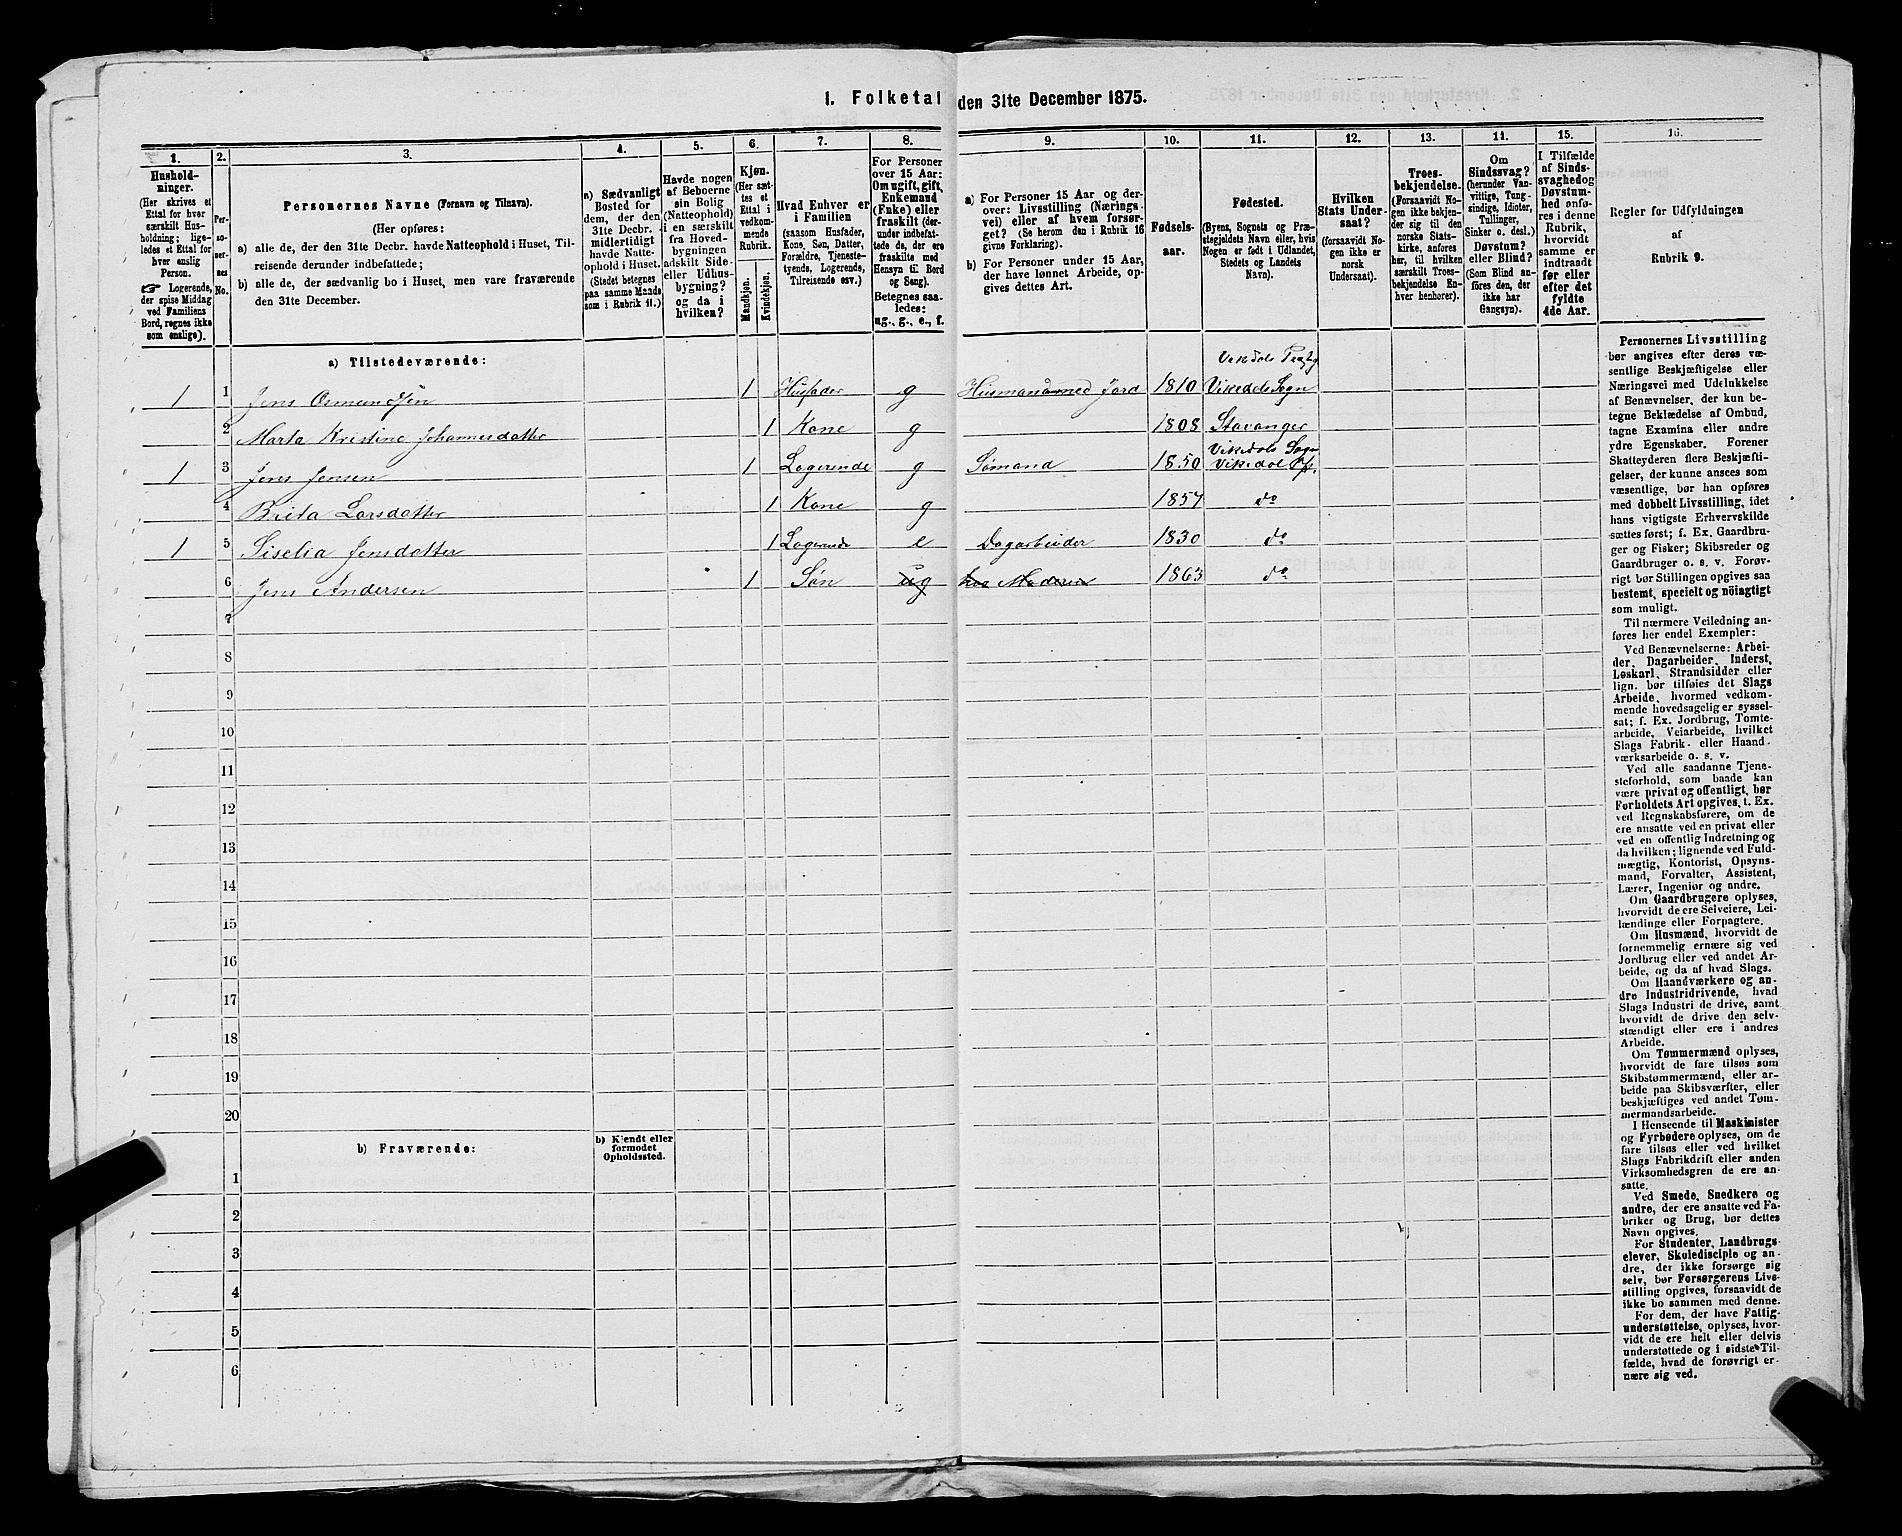 1. Folketal den 31te December 1875.
1.
Hushold-
ninger.
(Her skrives et
Ettal for hver
særskilt Hus-
holdning; lige-
ledes et Ettal for
hver enslig
Person.
☞ Logerende,
der spise Middag
ved Familiens
Bord, regnes ikke
som enslige).
2.
Per-
so-
ner-
nes
No.
3.
Personernes Navne (Fornavn og Tilnavn).
(Her opføres:
a) alle de, der den 31te Decbr. havde Natteophold i Huset, Til-
reisende derunder indbefattede;
b) alle de, der sædvanlig bo i Huset, men vare fraværende
den 31te December.
4.
a) Sædvanligt
Bosted for
dem, der den
31te Decbr.
midlertidigt
havde Natte-
ophold i Huset.
(Stedet betegnes
paa samme Maade
som i Rubrik 11.)
5.
Havde nogen
af Beboerne
sin Bolig
(Natteophold)
i en særskilt
fra Hoved-
bygningen
adskilt Side-
eller Udhus-
bygning?
og da i
hvilken?
6.
Kjøn.
(Her sæt-
tes et
Ettal i
vedkom-
mende
Rubrik.
Mandkjøn.
Kvindekjøn.
7.
Hvad Enhver er
i Familien
(saasom Husfader,
Kone, Søn, Datter,
Forældre, Tjeneste-
tyende, Logerende,
Tilreisende osv.)
8.
For Personer
over 15 Aar:
Om ugift, gift,
Enkemand
(Enke) eller
fraskilt (der-
under indbefat-
tede de, der ere
fraskilte med
Hensyn til Bord
og Seng).
Betegnes saa-
ledes:
ug., g., e., f.
9.
a) For Personer 15 Aar og der-
over: Livsstilling (Nærings-
vei) eller af hvem forsør-
get? (Se herom den i Rubrik 16
givne Forklaring).
b) For Personer under 15 Aar,
der have lønnet Arbeide, op-
gives dettes Art.
10.
Fødsels-
aar.
11.
Fødested.
(Byens, Sognets og Præ-
stegjeldets Navn eller, hvis
Nogen er født i Udlandet,
Stedets og Landets
Navn).
12.
Hvilken
Stats Under-
saat?
(forsaavidt No-
gen ikke er
norsk
Undersaat).
13.
Troes-
bekjendelse.
(Forsaavidt No-
gen ikke bekjen-
der sig til den
norske Stats-
kirke, anføres
her, til hvilken
særskilt Troes-
bekjendelse En-
hver henhører).
11.
Om
Sindssvag?
(herunder Van-
vittige, Tung-
sindige, Idioter,
Tullinger,
Sinker o. desl.)
Døvstum?
eller Blind?
(Som Blind an-
føres den, der
ikke har
Gangsyn).
15.
I Tilfælde
af Sinds-
svaghed og
Døvstum-
hed onfø-
res i denne
Rubrik,
hvorvidt
samme er
indtraadt
før eller
efter det
fyldte
4de Aar.
16.
Regler for Udfyldningen
af
Rubrik 9.
a) Tilstedeværende:
1 1 Jens Osmundsen 1 Husfader g Husmand med Jord 1810 Vikedals Sogn
2 Marta Kristine Johannesdatter 1 Kone g 1808 Stavanger
1 3 Jens Jensen 1 Logerende g Sømand 1850 Vikedals Sogn Vikedal Pr.
4 Brita Larsdatter 1 Kone g 1857 do
1 5 Siselia Jensdatter 1 Logerende e Dagarbeider 1830 do
6 Jens Andersen 1 Søn ug hos Moderen 1863 do
7
8
9
10
11
12
13
14
15
16
17
18
19
20
b) Fraværende:
b) Kjendt eller
formodet
Opholdssted.
1
2
3
4
5
6
Personernes Livsstilling
bør angives efter deres væ-
sentlige Beskjæftigelse eller
Næringsvei med Udelukkelse
af Benævnelser, der kun be-
tegne Beklædelse af Ombud,
tagne Examina eller andre
ydre Egenskaber. Forener
Skatteyderen flere Beskjæfti-
gelser, der kunne ansees som
væsentlige, bør han opføres
med dobbelt Livsstilling, idet
hans vigtigste Erhvervskilde
sættes først; f. Ex. Gaardbru-
ger og Fisker; Skibsreder og
Gaardbruger o. s. v. Forøv-
rigt bør Stillingen opgives saa
bestemt, specielt og nöiagtigt
som muligt.
Til nærmere Veiledning an-
føres her endel Exempler:
Ved Benævnelserne: Arbei-
der, Dagarbeider, Inderst,
Løskarl, Strandsidder eller
lign. bør tilføies det Slags
Arbeide, hvormed vedkom-
mende hovedsagelig er syssel-
sat; f. Ex. Jordbrug, Tomte-
arbeide, Veiarbeide, hvilket
Slags Fabrik- eller Haand-
værksarbeide o. s. v.
Ved alle saadanne Tjene-
steforhold, som baade kan
være privat og offentligt, bør
Forholdets Art opgives, t. Ex.
ved Regnskabsførere, om de
ere ansatte ved en privat eller
ved en offentlig Indretning og
da hvilken; lignende ved Fuld-
mægtig, Kontorist, Opsyns-
mand, Forvalter, Assistent,
Lærer, Ingeniør og andre.
Om Gaardbrugere oplyses,
hvorvidt de ere Selveiere, Lei-
lændinge eller Forpagtere.
Om Husmænd, hvorvidt de
fornemmelig ernære sig ved
Jordbrug eller ved andet Ar-
beide, og da af hvad Slags.
Om Haandværkere og an-
dre Industridrivende, hvad
Slags Industri de drive, samt
hvorvidt de drive den selv-
stændigt eller ere i andres
Arbeide.
Om Tømmermænd oplyses,
hvorvidt de fare tilsøs som
Skibstømmermænd, eller ar-
beide paa Skibsværfter, eller
beskjæftiges ved andet Tøm-
mermandsarbeide.
I Henseende til Maskinister
og Fyrbødere oplyses, om de
fare tilsøs eller ved hvilket
Slags Fabrikdrift eller anden
Virksomhedsgren de ere an-
satte.
Ved Smede, Snedkere og
andre, der ere ansatte ved Fa-
briker og Brug, bør dettes
Navn opgives.
For Studenter, Landbrugs-
elever, Skoledisciple og an-
dre, der ikke forsørge sig
selv, bør Forsørgerens Livs-
stilling opgives, forsaavidt de
ikke bo sammen med denne.
For dem, der have Fattig-
understøttelse, oplyses, hvor-
vidt de ere helt eller delvis
understøttede og i sidste Til-
fælde, hvad de forøvrigt er-
nære sig ved.